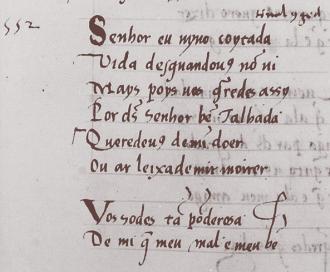 552
Senhor eu uyuo coytada
Vida desquandouꝯ nõ ui
Mays poys uos q̄redes assy
Por ds̄ Senhor bē Talhada
Queredeuꝯ de mī doer
Ou ar leixademir moirer
Vos sodes tā poderosa
De mi q̄ meu mal e meu bē